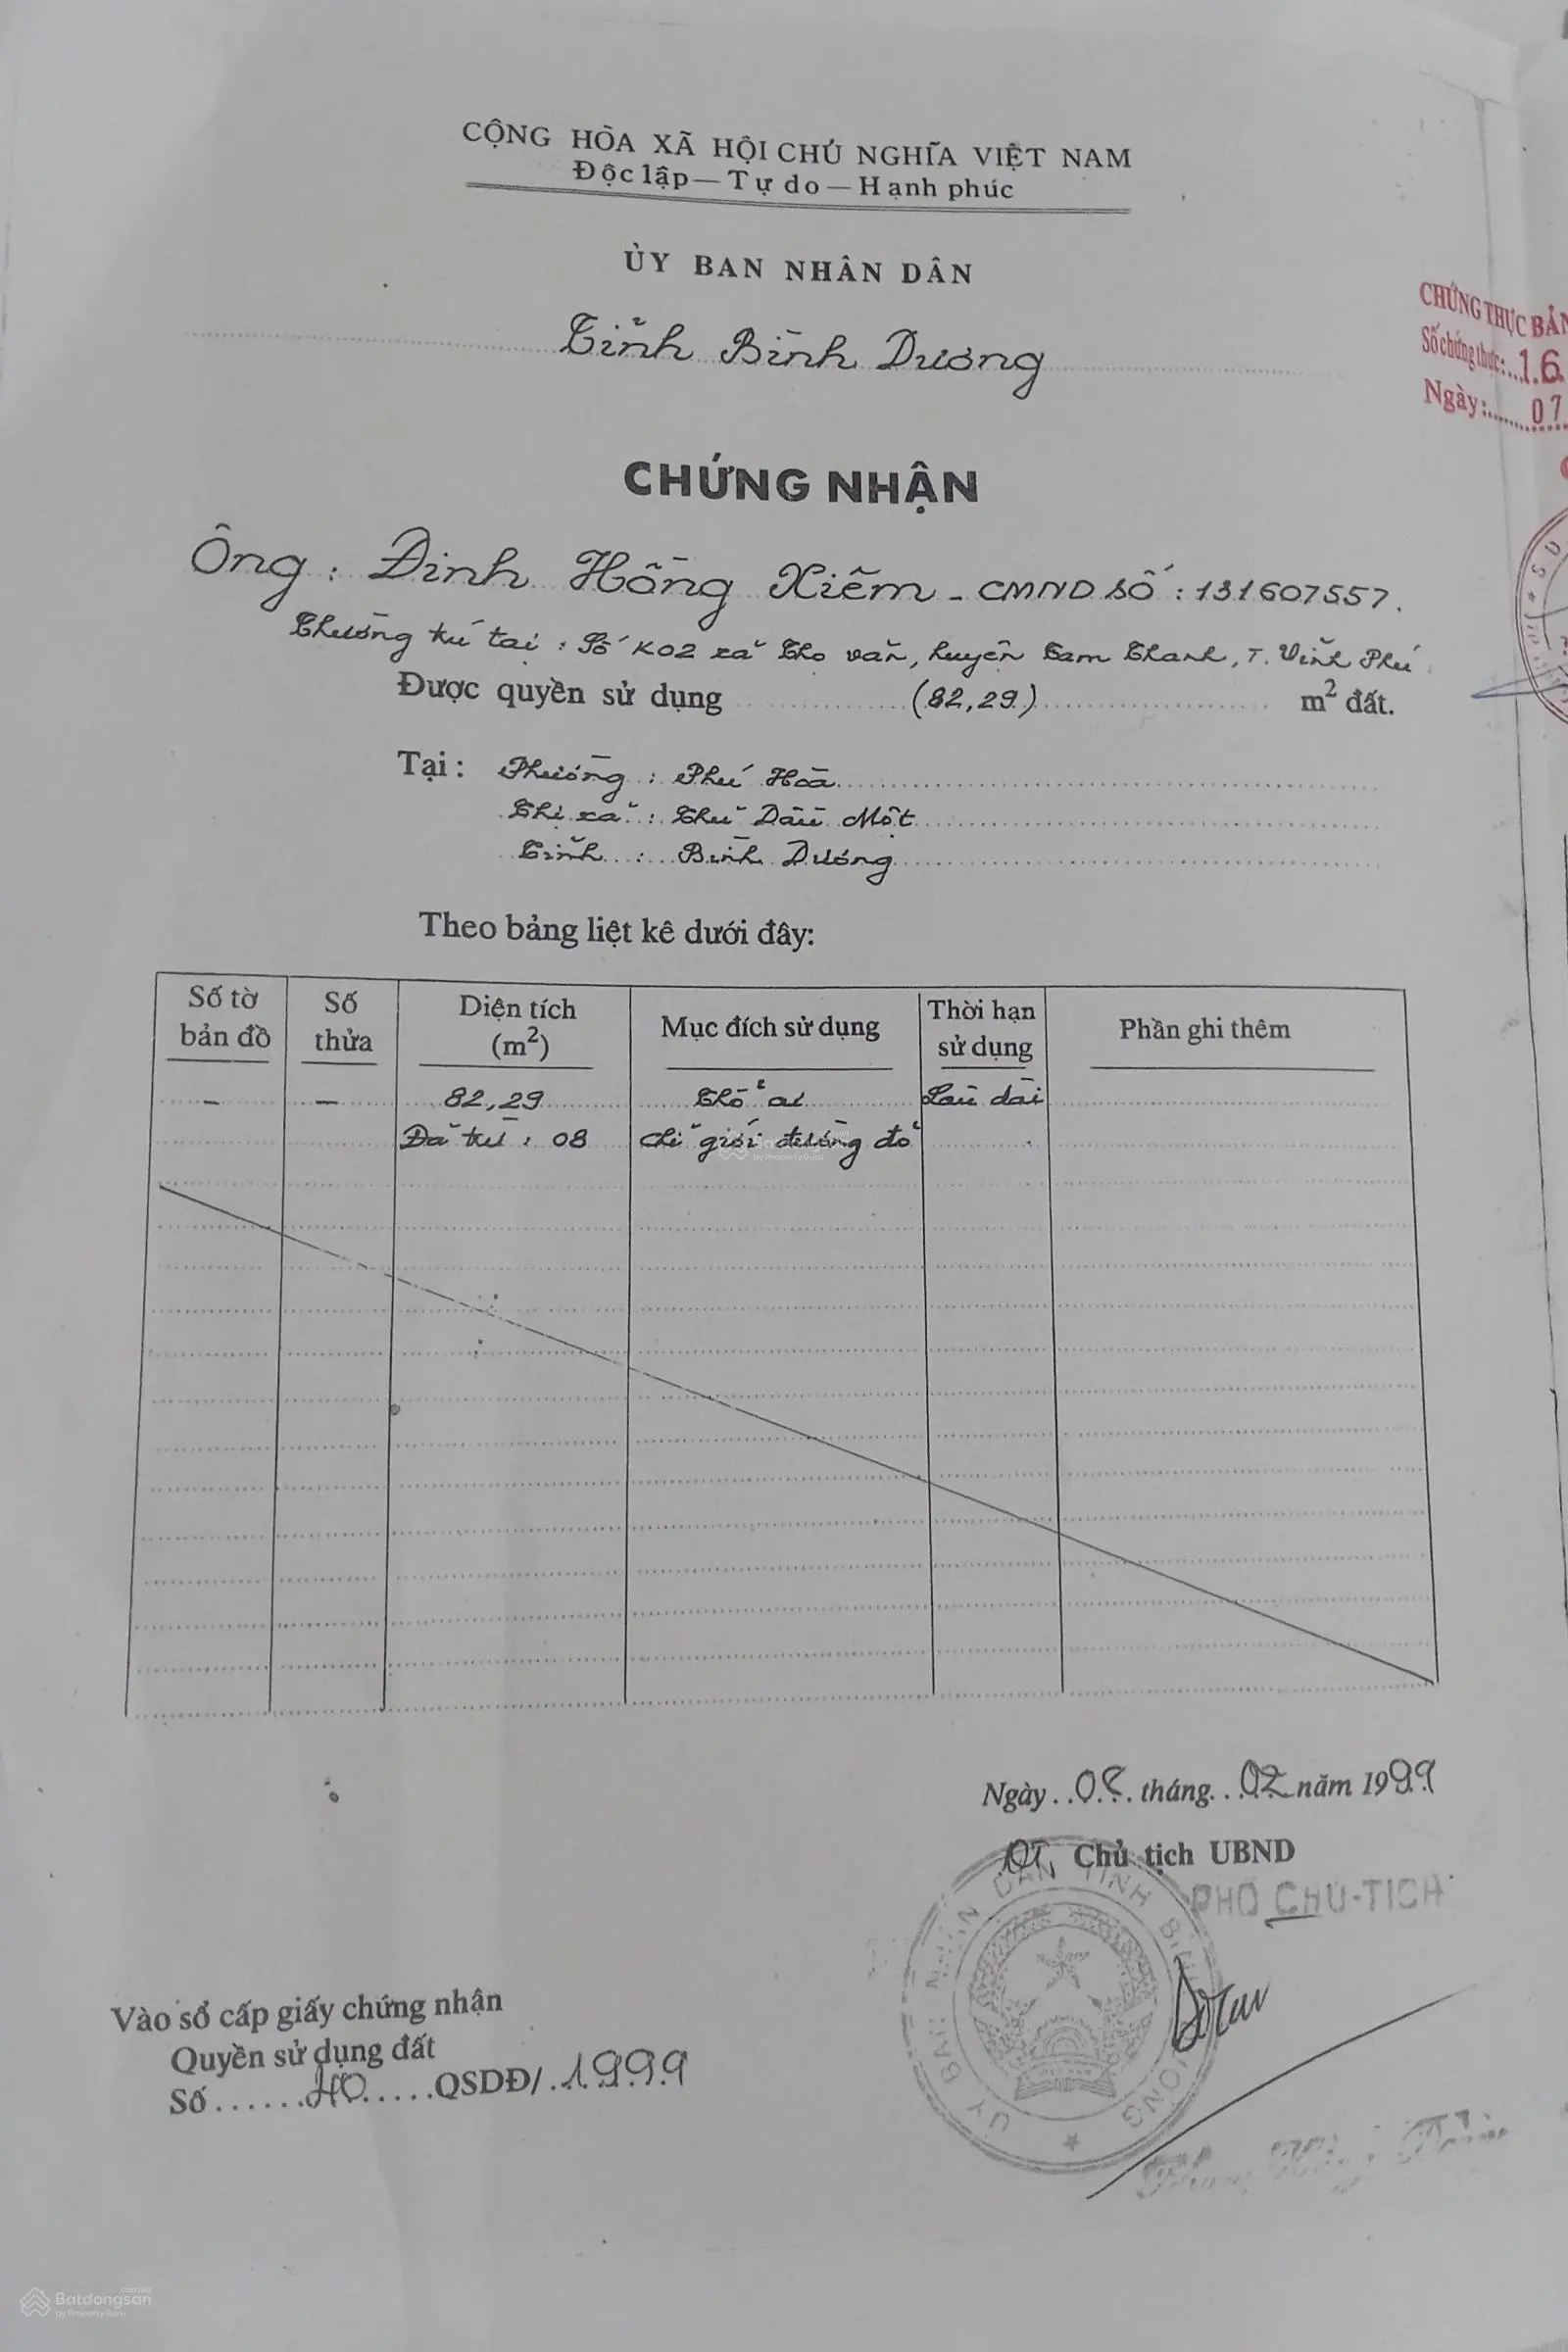 CỘNG HÒA XÃ HỘI CHỦ NGHĨA VIỆT NAM
Độc lập — Tự do — Hạnh phúc
ỦY BAN NHÂN DÂN
Tỉnh Bình Dương
CHỨNG THỰC BẢN
Số chứng thực:...16
Ngày:......07
CHỨNG NHẬN
Ông : Đinh Hồng Xiêm - CMND số : 131607557.
Thường trú tại : Số K02 xã Thọ văn, huyện Tam Thanh, T. Vĩnh Phú
Được quyền sử dụng (82,29) m² đất.
Tại : Phường : Phú Hòa
Thị xã : Thủ Dầu Một
Tỉnh : Bình Dương
Theo bảng liệt kê dưới đây:
Số tờ bản đồ Số thửa Diện tích (m²) Mục đích sử dụng Thời hạn sử dụng Phần ghi thêm
– – 82,29 Thổ cư Lâu dài
Đã trừ : 08 chỉ giới đường đỏ
Ngày 08 tháng 02 năm 1999
KT. Chủ tịch UBND
PHÓ CHỦ-TỊCH
ỦY BAN NHÂN DÂN TỈNH BÌNH DƯƠNG
Vào sổ cấp giấy chứng nhận
Quyền sử dụng đất
Số......HO.....QSDĐ/.1999
Batdongsan
.com.vn
by PropertyGuru